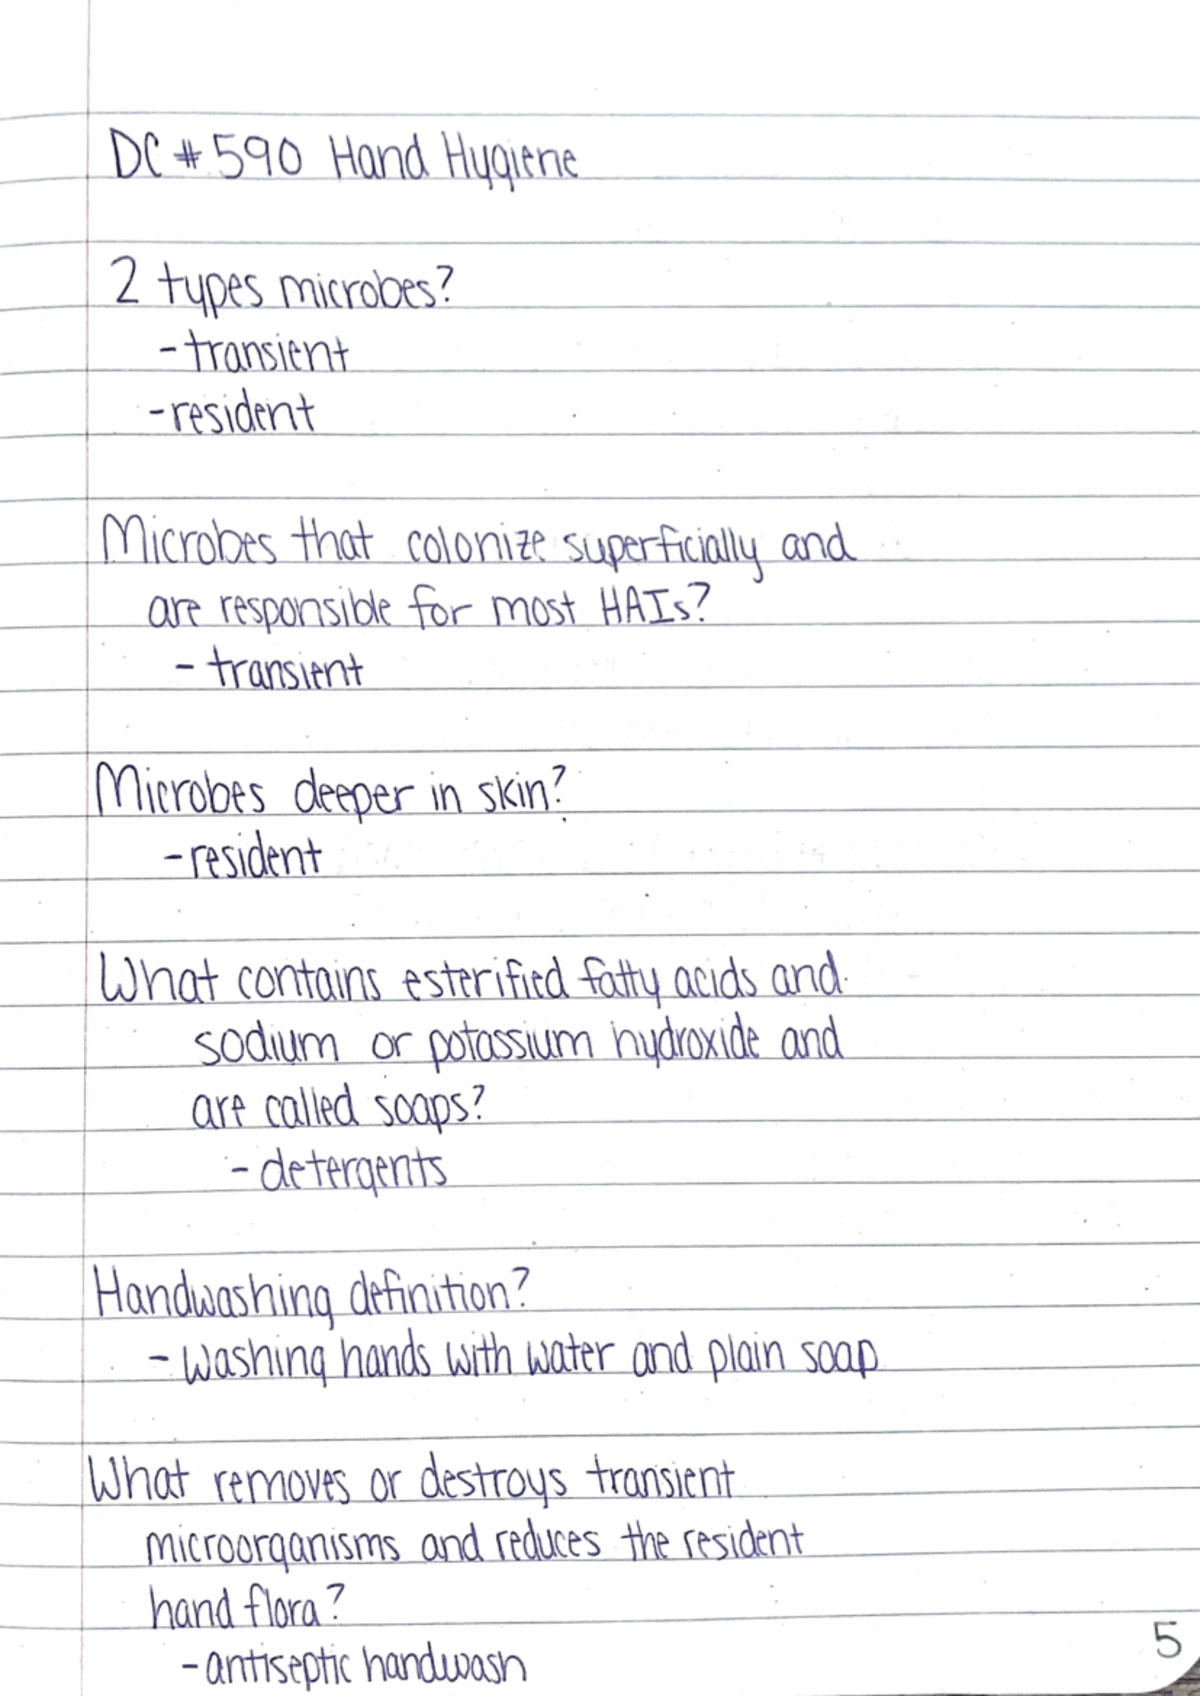 DC # 590 Hand Hygiene
2 types microbes?
- transient
- resident
Microbes that colonize superficially and
are responsible for most HAIs?
- transient
Microbes deeper in skin?
- resident
What contains esterified fatty acids and
sodium or potassium hydroxide and
are called soaps?
- detergents
Handwashing definition?
- washing hands with water and plain soap
What removes or destroys transient
microorganisms and reduces the resident
hand flora?
- antiseptic handwash
5